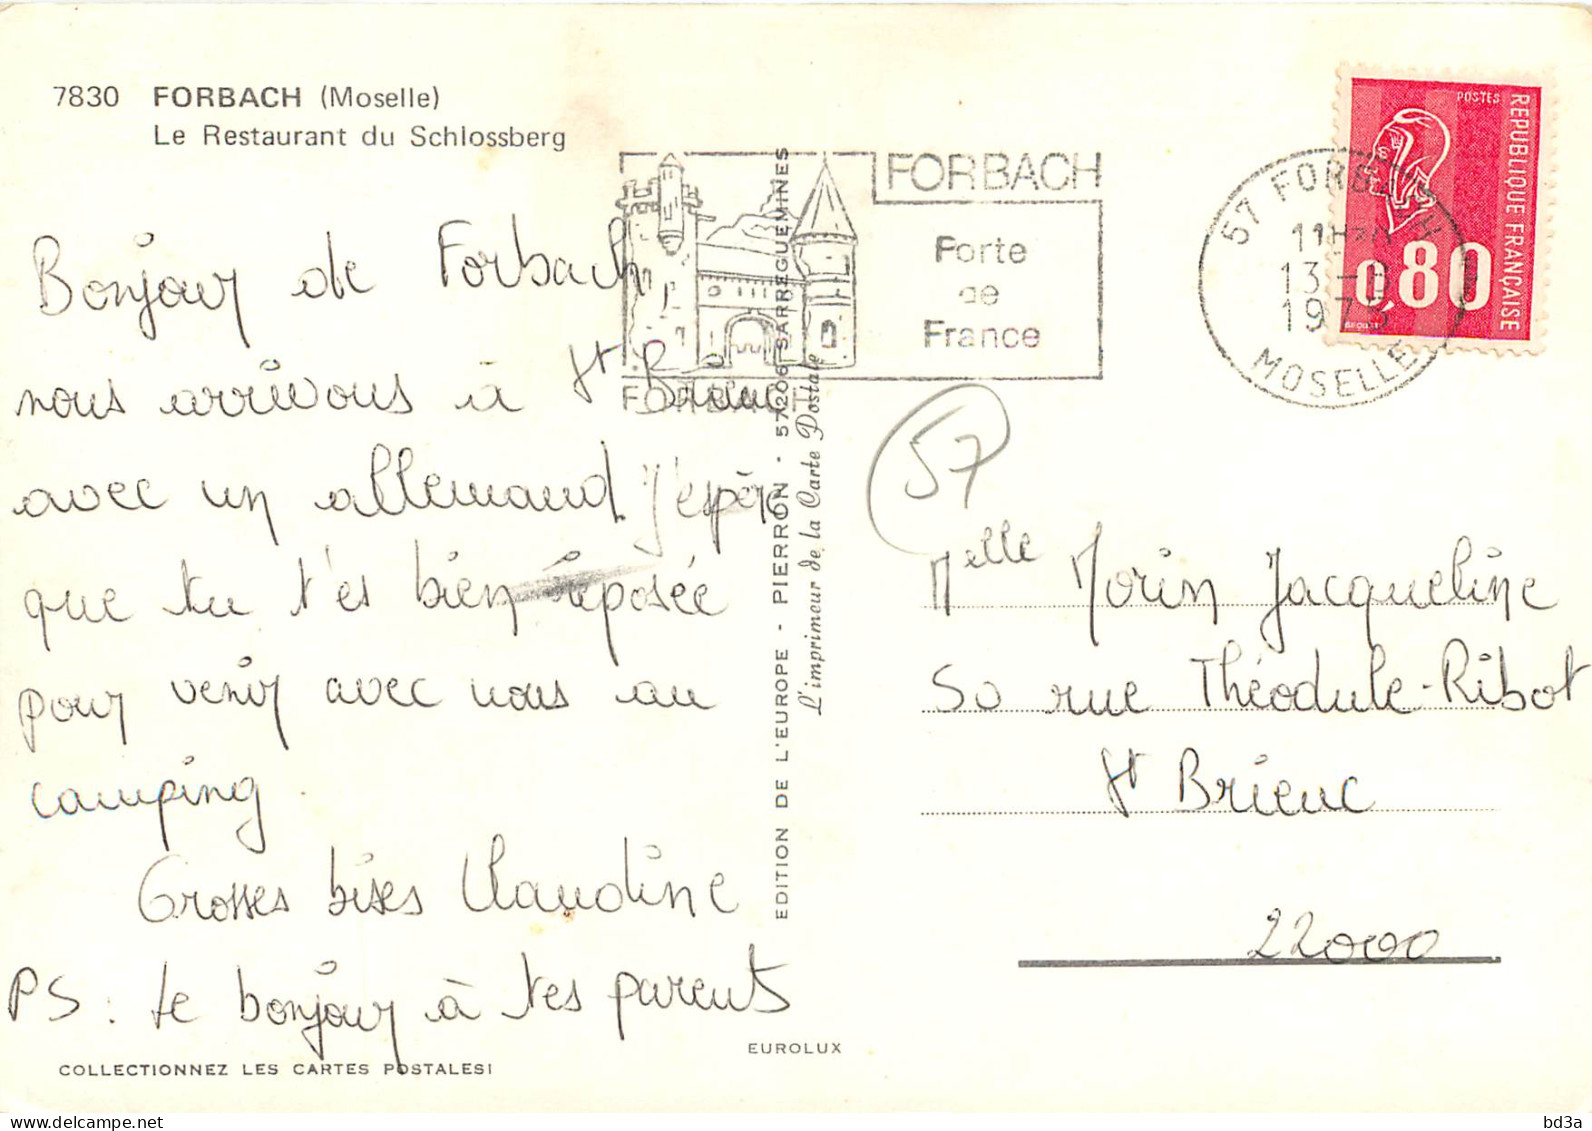 7830 FORBACH (Moselle)
Le Restaurant du Schlossberg
Bonjour de Forbach
nous arrivons à St Brieuc
avec un allemand J'espère
que tu t'es bien reposée
pour venir avec nous au
camping
Grosses bises Claudine
PS : le bonjour à tes parents
COLLECTIONNEZ LES CARTES POSTALES!
EUROLUX
EDITION DE L'EUROPE - PIERRON - 57206 SARREGUEMINES
L'imprimeur de la Carte Postale
FORBACH
Porte
de
France
57 FORBACH
13-
MOSELLE
POSTES
REPUBLIQUE FRANÇAISE
0,80
57
Melle Morin Jacqueline
50 rue Théodule-Ribot
St Brieuc
22000
bd3a